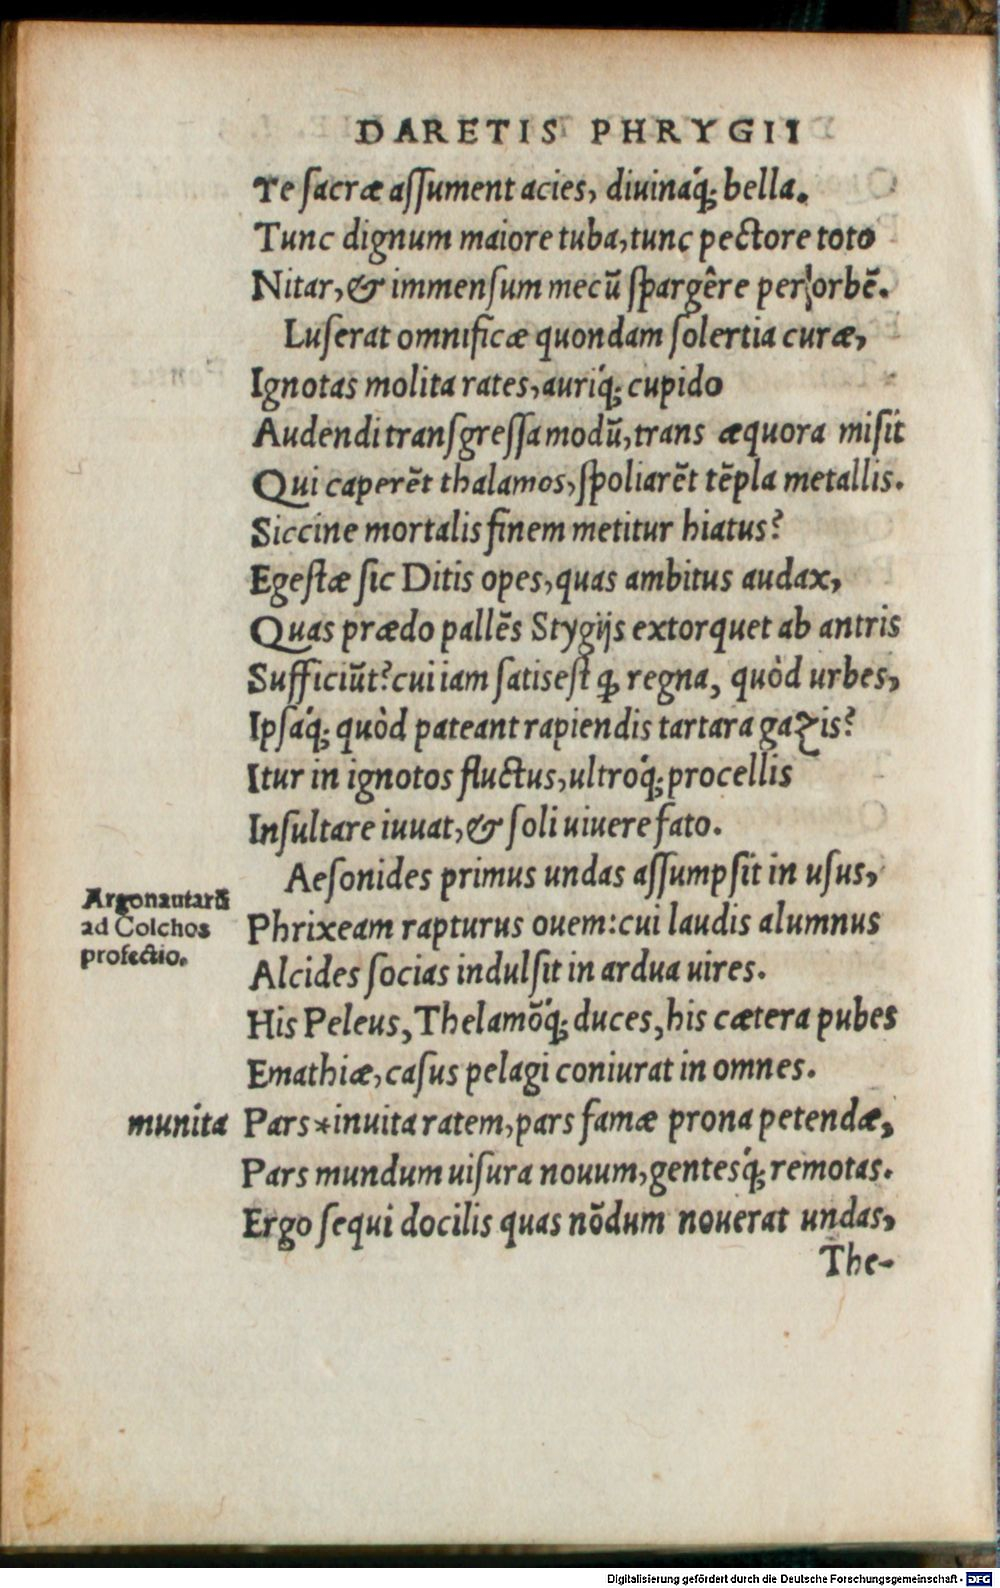 DARETIS PHRYGII
Te sacræ assument acies, diuináq; bella.
Tunc dignum maiore tuba, tunc pectore toto
Nitar, & immensum mecũ spargêre per orbẽ.
Luserat omnificæ quondam solertia curæ,
Ignotas molita rates, auríq; cupido
Audendi transgressa modũ, trans æquora misit
Qui caperẽt thalamos, spoliarẽt tẽpla metallis.
Siccine mortalis finem metitur hiatus?
Egestæ sic Ditis opes, quas ambitus audax,
Quas prædo pallẽs Stygijs extorquet ab antris
Sufficiũt? cui iam satis est q; regna, quòd urbes,
Ipsáq; quòd pateant rapiendis tartara gazis?
Itur in ignotos fluctus, ultróq; procellis
Insultare iuuat, & soli uiuere fato.
Aesonides primus undas assumpsit in usus,
Argonautarũ
ad Colchos
profectio.
Phrixeam rapturus ouem: cui laudis alumnus
Alcides socias indulsit in ardua uires.
His Peleus, Thelamõq; duces, his cætera pubes
Emathiæ, casus pelagi coniurat in omnes.
munita Pars *inuita ratem, pars famæ prona petendæ,
Pars mundum uisura nouum, gentesq́; remotas.
Ergo sequi docilis quas nõdum nouerat undas,
The-
Digitalisierung gefördert durch die Deutsche Forschungsgemeinschaft - DFG